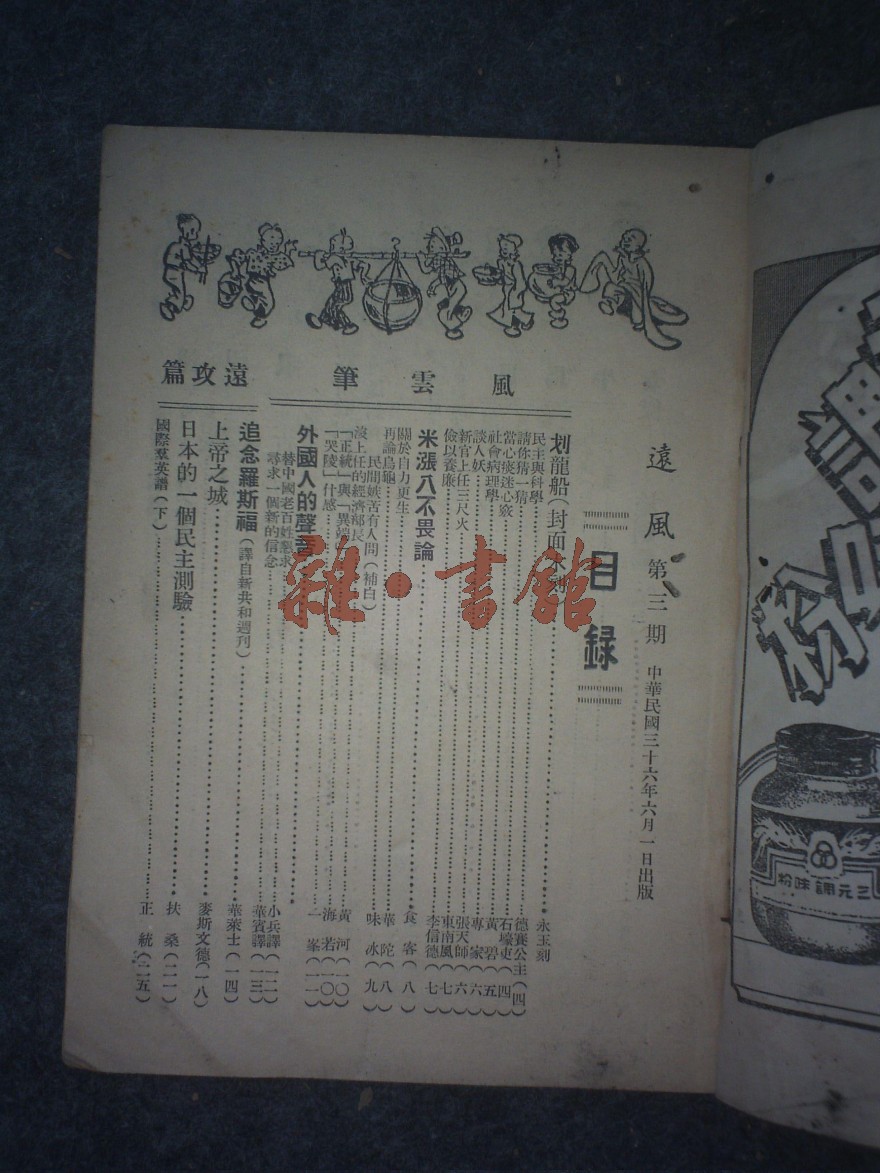 遠風 第三期 中華民國三十六年六月一日出版
目錄
風雲筆
划龍船(封面木刻) 永玉刻
民主與科學 德賽公主(四)
請你猜一猜 石壕吏(四)
當心痰迷心竅 黃碧(五)
社會病理學 專家(六)
談人妖 張天師(六)
新官上任三尺火 東南風(七)
儉以養廉 李信德(七)
米漲八不畏論 食客(八)
關於自力更生 華陀(八)
再論烏龜 味冰(九)
民間嫉苦有人問(補白)
沒上任的經濟部長 黃河(一〇)
「正統」與「異端」 海若(一〇)
「哭陵」什感 一峯(一一)
外國人的聲音
替中國老百姓懇求 小兵譯(一二)
尋求一個新的信念 華賓譯(一三)
遠攻篇
追念羅斯福(譯自新共和週刊) 華萊士(一四)
上帝之城 麥斯文德(一八)
日本的一個民主測驗 扶桑(二一)
國際羣英譜(下) 正統(二五)
雜·書館
粉
三元牌味粉